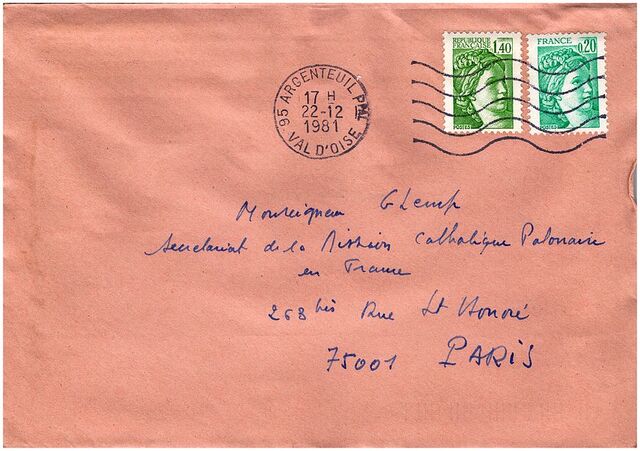 REPUBLIQUE FRANCAISE 1,40
FRANCE 0,20
POSTES
POSTES
95 ARGENTEUIL PPAL
17 H
22-12
1981
VAL D'OISE
Monseigneur Glemp
Secretariat de la Mission Catholique Polonaise
en France
263 bis Rue St Honoré
75001 PARIS